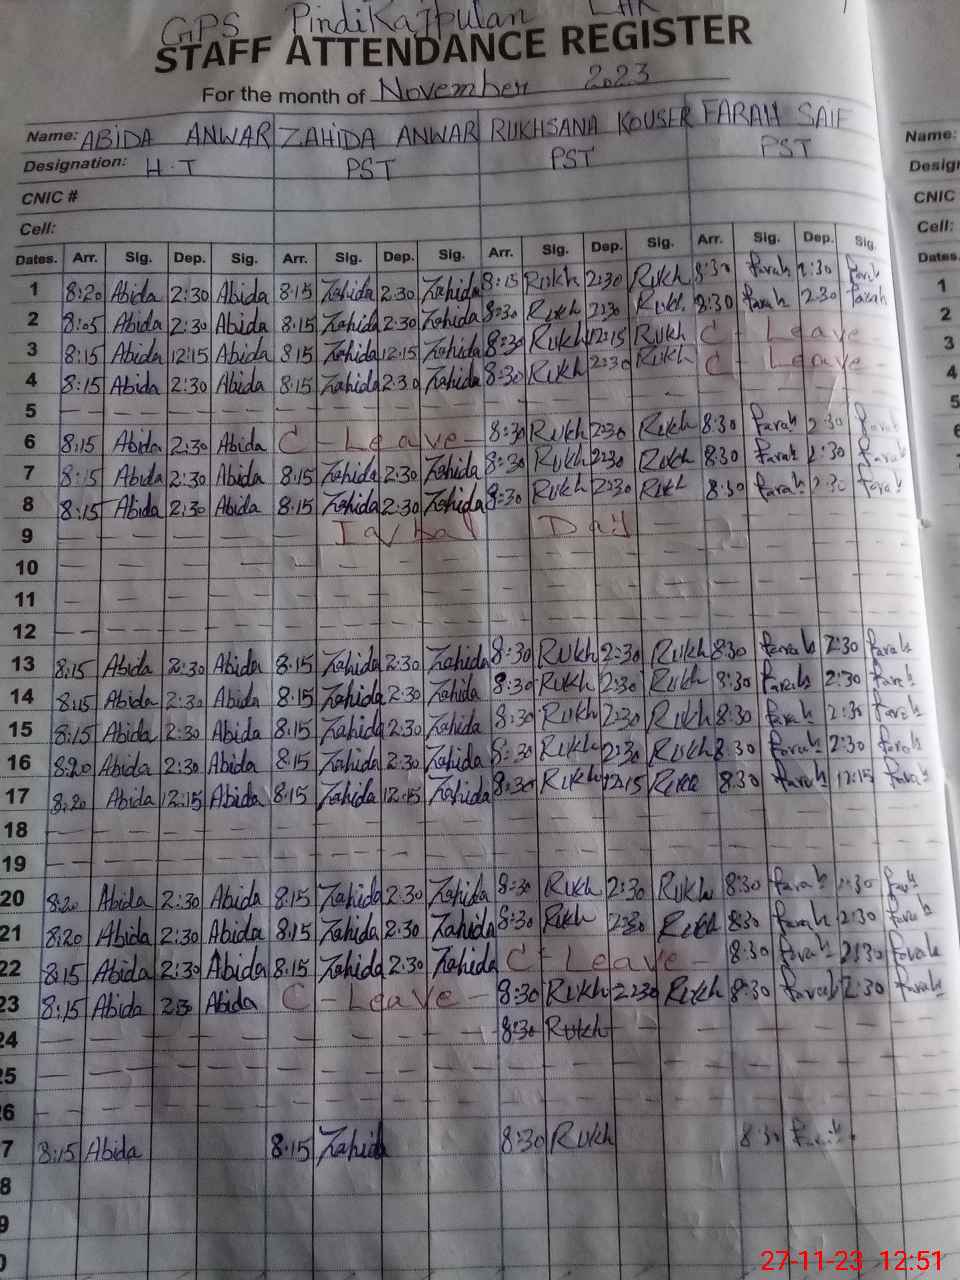 GPS Pindi Rajputan LHR
STAFF ATTENDANCE REGISTER
For the month of November 2023
Name: ABIDA ANWAR ZAHIDA ANWAR RUKHSANA KOUSER FARAH SAIF Name:
Designation: H.T PST PST PST
CNIC # CNIC
Cell: Cell:
Dates. Arr. Sig. Dep. Sig. Arr. Sig. Dep. Sig. Arr. Sig. Dep. Sig. Arr. Sig. Dep. Sig. Dates.
1 8:20 Abida 2:30 Abida 8:15 Zahida 2:30 Zahida 8:15 Rukh 2:30 Rukh 8:30 Farah 2:30 Farah 1
2 8:05 Abida 2:30 Abida 8:15 Zahida 2:30 Zahida 8:30 Rukh 2:30 Rukh 8:30 Farah 2:30 Farah 2
3 8:15 Abida 12:15 Abida 8:15 Zahida 12:15 Zahida 8:30 Rukh 12:15 Rukh C - Leave - 3
4 8:15 Abida 2:30 Abida 8:15 Zahida 2:30 Zahida 8:30 Rukh 2:30 Rukh C - Leave - 4
5 5
6 8:15 Abida 2:30 Abida C - Leave - 8:30 Rukh 2:30 Rukh 8:30 Farah 2:30 Farah
7 8:15 Abida 2:30 Abida 8:15 Zahida 2:30 Zahida 8:30 Rukh 2:30 Rukh 8:30 Farah 2:30 Farah
8 8:15 Abida 2:30 Abida 8:15 Zahida 2:30 Zahida 8:30 Rukh 2:30 Rukh 8:30 Farah 2:30 Farah
9 Iqbal Day
10
11
12
13 8:15 Abida 2:30 Abida 8:15 Zahida 2:30 Zahida 8:30 Rukh 2:30 Rukh 8:30 Farah 2:30 Farah
14 8:15 Abida 2:30 Abida 8:15 Zahida 2:30 Zahida 8:30 Rukh 2:30 Rukh 8:30 Farah 2:30 Farah
15 8:15 Abida 2:30 Abida 8:15 Zahida 2:30 Zahida 8:30 Rukh 2:30 Rukh 8:30 Farah 2:30 Farah
16 8:20 Abida 2:30 Abida 8:15 Zahida 2:30 Zahida 8:30 Rukh 2:30 Rukh 8:30 Farah 2:30 Farah
17 8:20 Abida 12:15 Abida 8:15 Zahida 12:15 Zahida 8:30 Rukh 12:15 8:30 Farah 12:15 Farah
18
19
20 8:20 Abida 2:30 Abida 8:15 Zahida 2:30 Zahida 8:30 Rukh 2:30 Rukh 8:30 Farah 2:30 Farah
21 8:20 Abida 2:30 Abida 8:15 Zahida 2:30 Zahida 8:30 Rukh 2:30 Rukh 8:30 Farah 2:30 Farah
22 8:15 Abida 2:30 Abida 8:15 Zahida 2:30 Zahida C - Leave - 8:30 Farah 2:30 Farah
23 8:15 Abida 2:30 Abida C - Leave - 8:30 Rukh 2:30 Rukh 8:30 Farah 2:30 Farah
24 8:30 Rukh
25
26
7 8:15 Abida 8:15 Zahida 8:30 Rukh 8:30 Farah
8
9
0
27-11-23 12:51